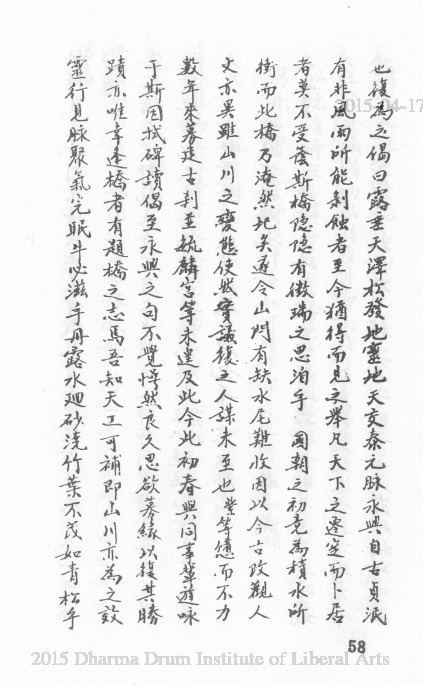 也復為之偈曰露垂天澤松發地靈地天交泰元脉永興自古貞泯
有非風雨所能剝蝕者至今猶得而見之舉凡天下之遷筮而卜居
者莫不受蔭斯橋隱隱有徵瑞之思洎乎 國朝之初竟為積水所
衝而此橋乃淹然圮矣遂令山門有缺水尾難收因以今古改觀人
文亦異雖山川之變態使然實議復之人謀未至也 等憊而不力
數年來募建古剎至毓麟宮等未遑及此今此初春與同事輩遊咏
于斯因拭碑讀偈至永興之句不覺悽然良久思欲募緣以復其勝
蹟亦唯幸逢橋者有題橋之志焉吾知天工可補即山川亦為之效
靈行見脉聚氣完眠牛必滋乎丹露水迴砂澆竹葉不茂如青松乎
58
2015-04-17
2015 Dharma Drum Institute of Liberal Arts